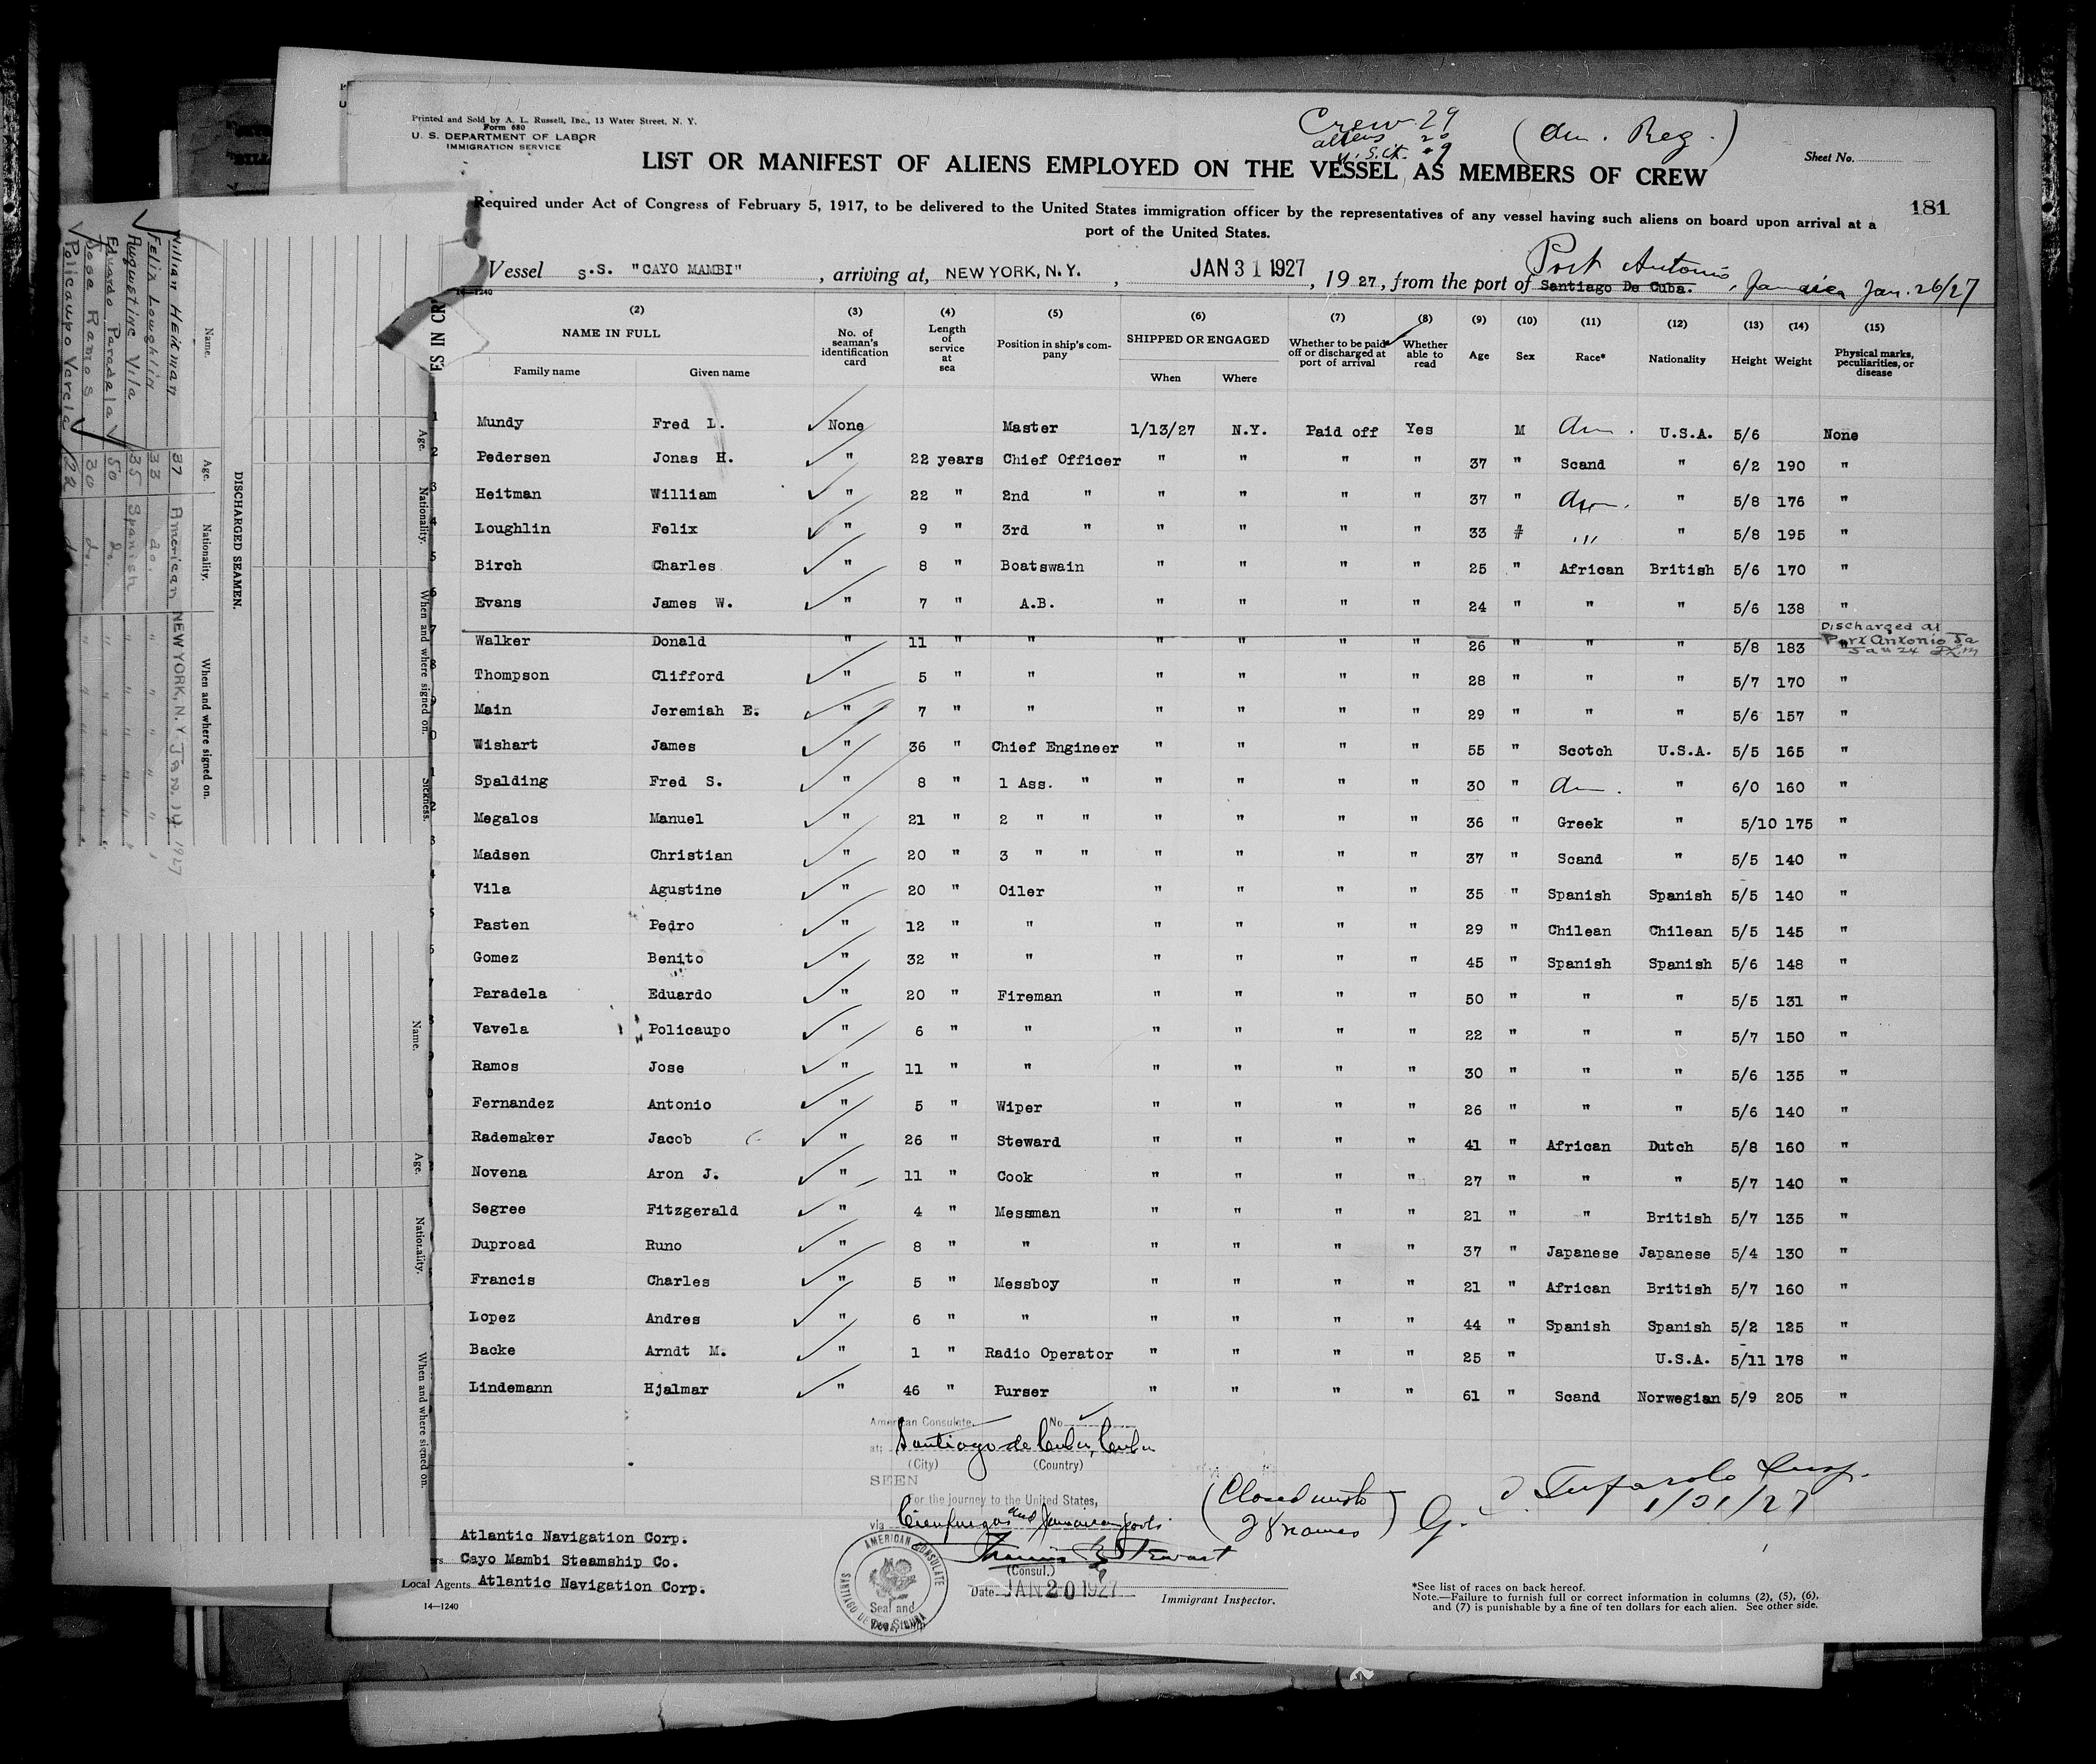 Printed and Sold by A. L. Russell, Inc., 13 Water Street, N. Y.
Form 680
U. S. DEPARTMENT OF LABOR
IMMIGRATION SERVICE
Crew 29
aliens 20
U.S.Cit. 9
(Am. Reg.)
Sheet No.
LIST OR MANIFEST OF ALIENS EMPLOYED ON THE VESSEL AS MEMBERS OF CREW
181
Required under Act of Congress of February 5, 1917, to be delivered to the United States immigration officer by the representatives of any vessel having such aliens on board upon arrival at a
port of the United States.
Vessel S.S. "CAYO MAMBI", arriving at, NEW YORK, N.Y., JAN 31 1927, 1927, from the port of Santiago De Cuba. Port Antonio, Jamaica Jan. 26/27
14—1240
(2) (3) (4) (5) (6) (7) (8) (9) (10) (11) (12) (13) (14) (15)
NAME IN FULL
Family name Given name
No. of seaman's identification card
Length of service at sea
Position in ship's company
SHIPPED OR ENGAGED
When Where
Whether to be paid off or discharged at port of arrival
Whether able to read
Age Sex Race* Nationality Height Weight
Physical marks, peculiarities, or disease
Mundy Fred L. None Master 1/13/27 N.Y. Paid off Yes M Am. U.S.A. 5/6 None
Pedersen Jonas H. " 22 years Chief Officer " " " " 37 " Scand " 6/2 190 "
Heitman William " 22 " 2nd " " " " " 37 " Am. " 5/8 176 "
Loughlin Felix " 9 " 3rd " " " " " 33 " " 5/8 195 "
Birch Charles " 8 " Boatswain " " " " 25 " African British 5/6 170 "
Evans James W. " 7 " A.B. " " " " 24 " " " 5/6 138 "
Walker Donald " 11 " " " " " " 26 " " " 5/8 183 " Discharged at Port Antonio Ja Jan 24
Thompson Clifford " 5 " " " " " " 28 " " " 5/7 170 "
Main Jeremiah E. " 7 " " " " " " 29 " " " 5/6 157 "
Wishart James " 36 " Chief Engineer " " " " 55 " Scotch U.S.A. 5/5 165 "
Spalding Fred S. " 8 " 1 Ass. " " " " " 30 " Am. " 6/0 160 "
Megalos Manuel " 21 " 2 " " " " " " 36 " Greek " 5/10 175 "
Madsen Christian " 20 " 3 " " " " " " 37 " Scand " 5/5 140 "
Vila Agustine " 20 " Oiler " " " " 35 " Spanish Spanish 5/5 140 "
Pasten Pedro " 12 " " " " " " 29 " Chilean Chilean 5/5 145 "
Gomez Benito " 32 " " " " " " 45 " Spanish Spanish 5/6 148 "
Paradela Eduardo " 20 " Fireman " " " " 50 " " " 5/5 131 "
Vavela Policaupo " 6 " " " " " " 22 " " " 5/7 150 "
Ramos Jose " 11 " " " " " " 30 " " " 5/6 135 "
Fernandez Antonio " 5 " Wiper " " " " 26 " " " 5/6 140 "
Rademaker Jacob " 26 " Steward " " " " 41 " African Dutch 5/8 160 "
Novena Aron J. " 11 " Cook " " " " 27 " " " 5/7 140 "
Segree Fitzgerald " 4 " Messman " " " " 21 " " British 5/7 135 "
Duproad Runo " 8 " " " " " " 37 " Japanese Japanese 5/4 130 "
Francis Charles " 5 " Messboy " " " " 21 " African British 5/7 160 "
Lopez Andres " 6 " " " " " " 44 " Spanish Spanish 5/2 125 "
Backe Arndt M. " 1 " Radio Operator " " " " 25 " U.S.A. 5/11 178 "
Lindemann Hjalmar " 46 " Purser " " " " 61 " Scand Norwegian 5/9 205 "
American Consulate No
at: Santiago de Cuba, Cuba
(City) (Country)
SEEN
For the journey to the United States,
via Cienfuegos and Jamaican ports
(Closed with
28 names)
Insp.
1/31/27
(Consul.)
Date JAN 20 1927
AMERICAN CONSULATE
SANTIAGO DE CUBA, CUBA
Seal and
Fee Stamp
Immigrant Inspector.
Atlantic Navigation Corp.
Cayo Mambi Steamship Co.
Local Agents Atlantic Navigation Corp.
14—1240
*See list of races on back hereof.
Note.—Failure to furnish full or correct information in columns (2), (5), (6),
and (7) is punishable by a fine of ten dollars for each alien. See other side.
DISCHARGED SEAMEN.
Name. Age. Nationality. When and where signed on.
William Heitman 37 American NEW YORK, N.Y. Jan. 14 1927
Felix Loughlin 33 do. " " "
Augustine Vila 35 Spanish " " "
Eduardo Paradela 50 do. " " "
Jose Ramos 30 do. " " "
Policaupo Varela 22 do " " "
Age. Nationality. When and where signed on. Sickness.
Name. Age. Nationality. When and where signed on.